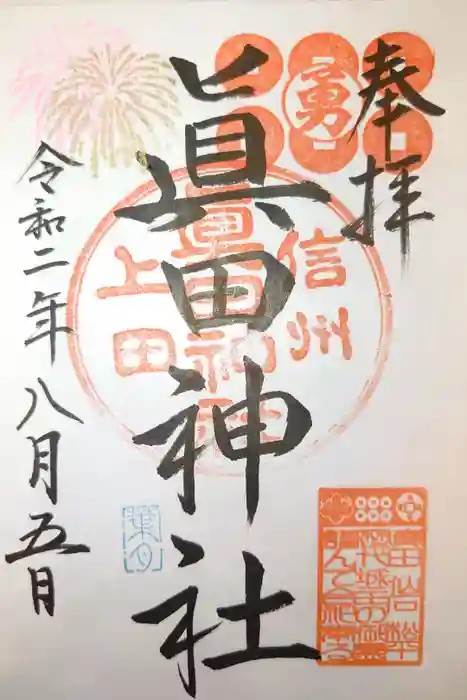 奉拝
勇
信州
眞田神社
上田
眞田神社
葉月
令和二年八月五日